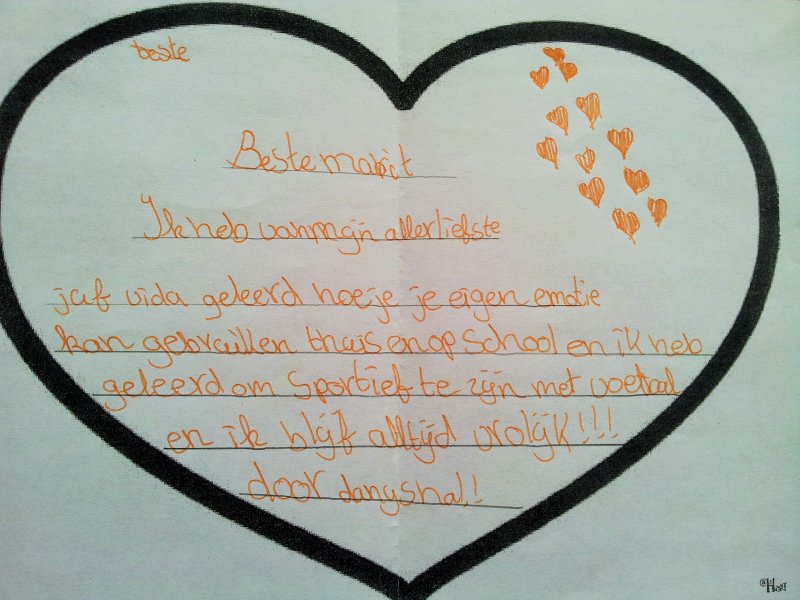 beste
Beste marit
Ik heb van mijn allerliefste
juf vida geleerd hoe je je eigen emotie
kan gebruiken thuis en op school en ik heb
geleerd om sportief te zijn met voetbal
en ik blijf alltijd vrolijk!!!
door danysha!!
@Hart